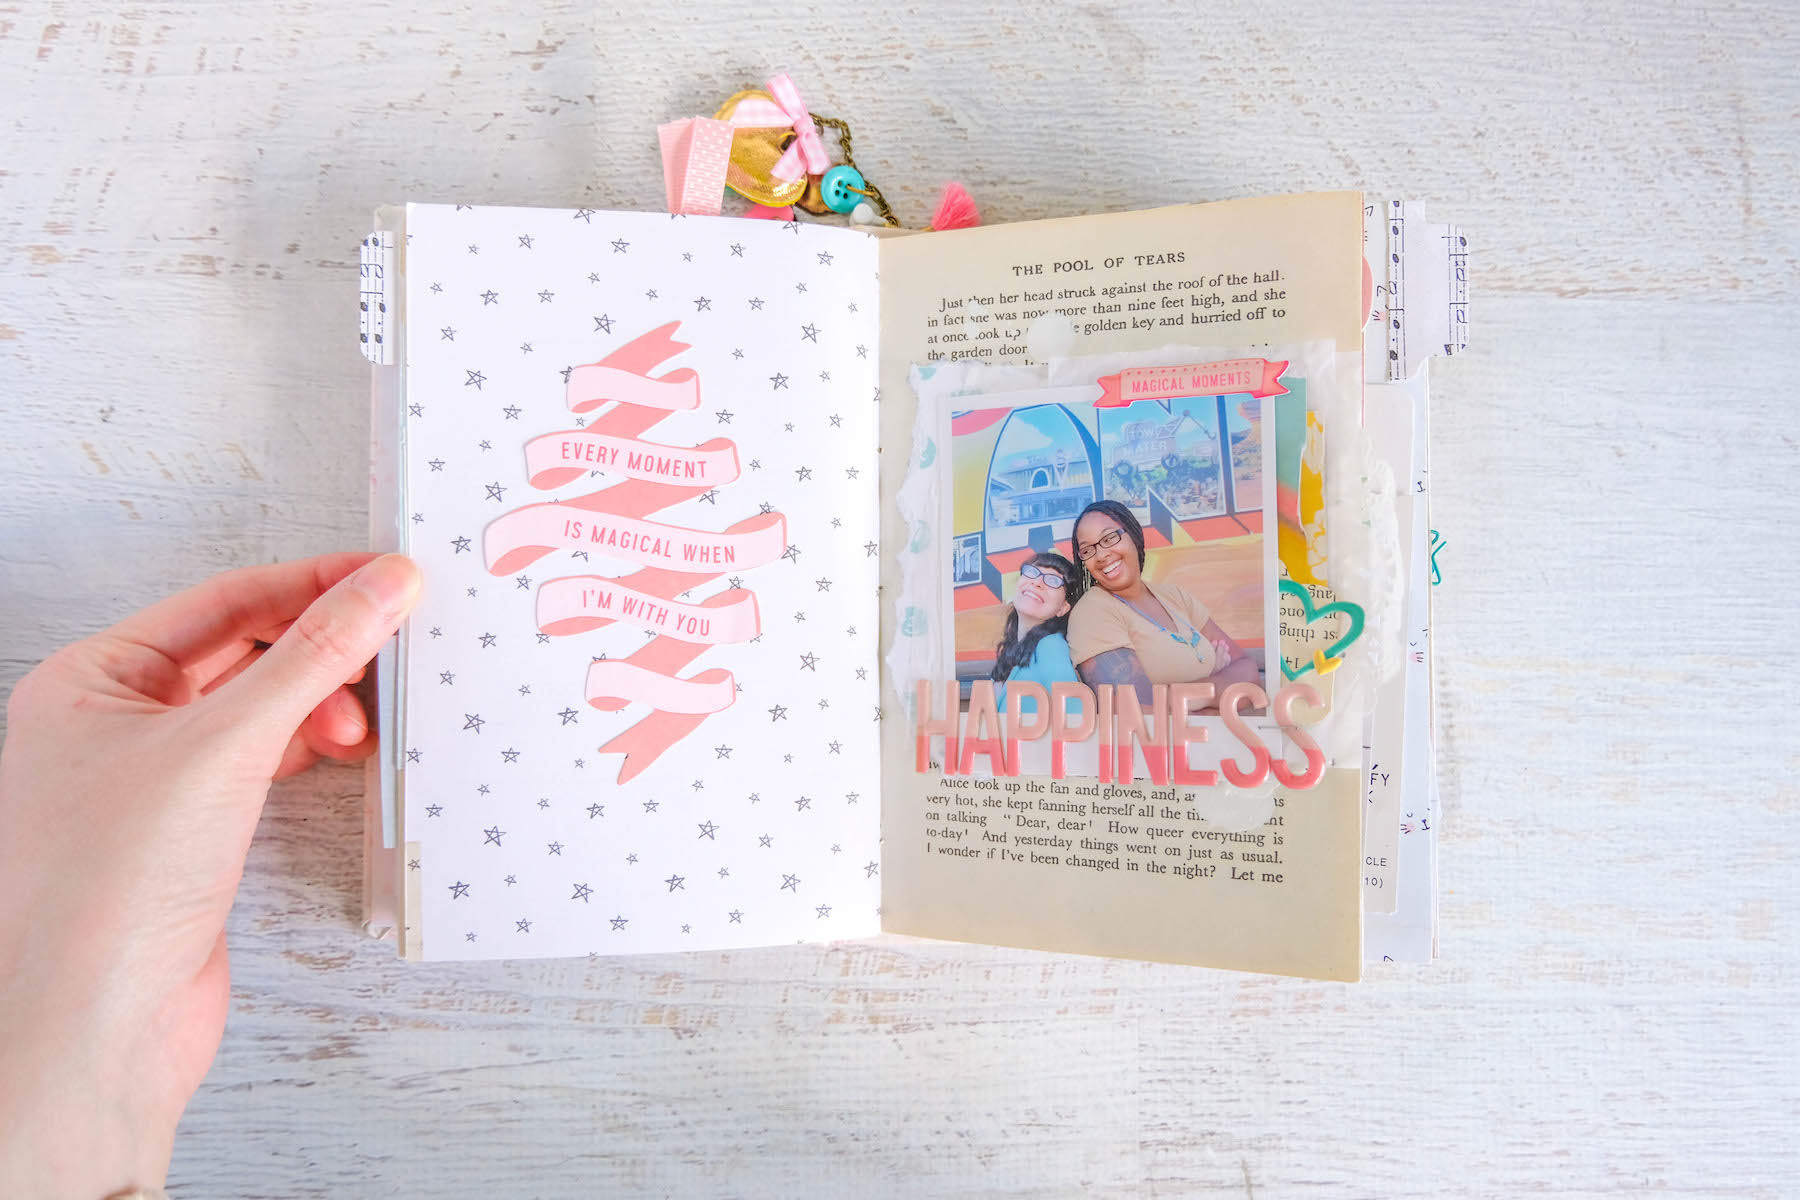 EVERY MOMENT
IS MAGICAL WHEN
I'M WITH YOU
THE POOL OF TEARS
Just then her head struck against the roof of the hall.
in fact she was now more than nine feet high, and she
at once took up golden key and hurried off to
the garden door
MAGICAL MOMENTS
TOW
MATER
HAPPINESS
Alice took up the fan and gloves, and, as
very hot, she kept fanning herself all the
on talking "Dear, dear! How queer everything is
to-day! And yesterday things went on just as usual.
I wonder if I've been changed in the night? Let me
one
st thing
FY
CLE
10)